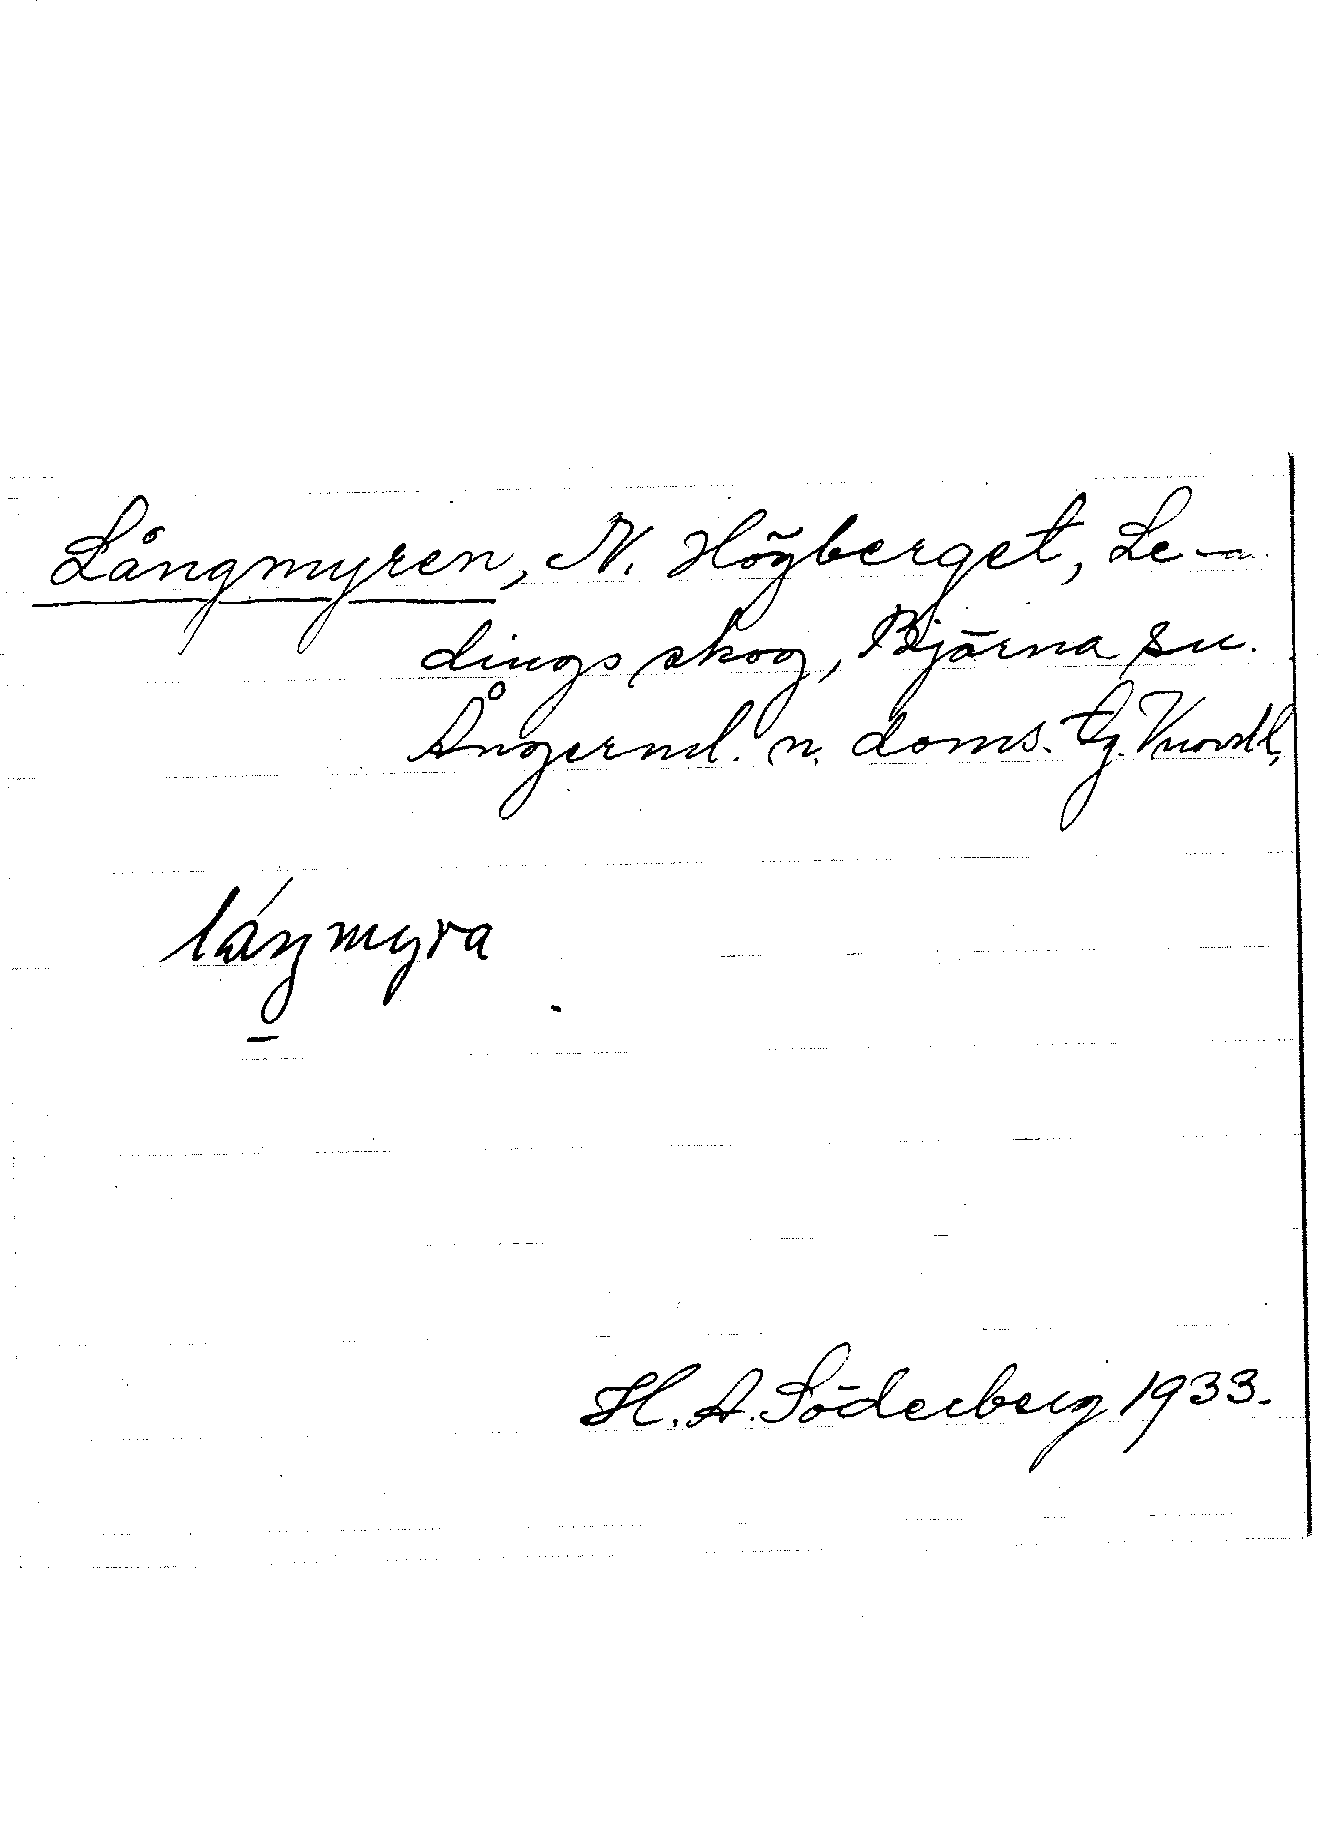 Långmyren, N. Högberget, Le-
dings skog, Björna sn.
Ångerml. n. doms. tg. Vnorrl.
láŋmyra
H. A. Söderberg 1933.